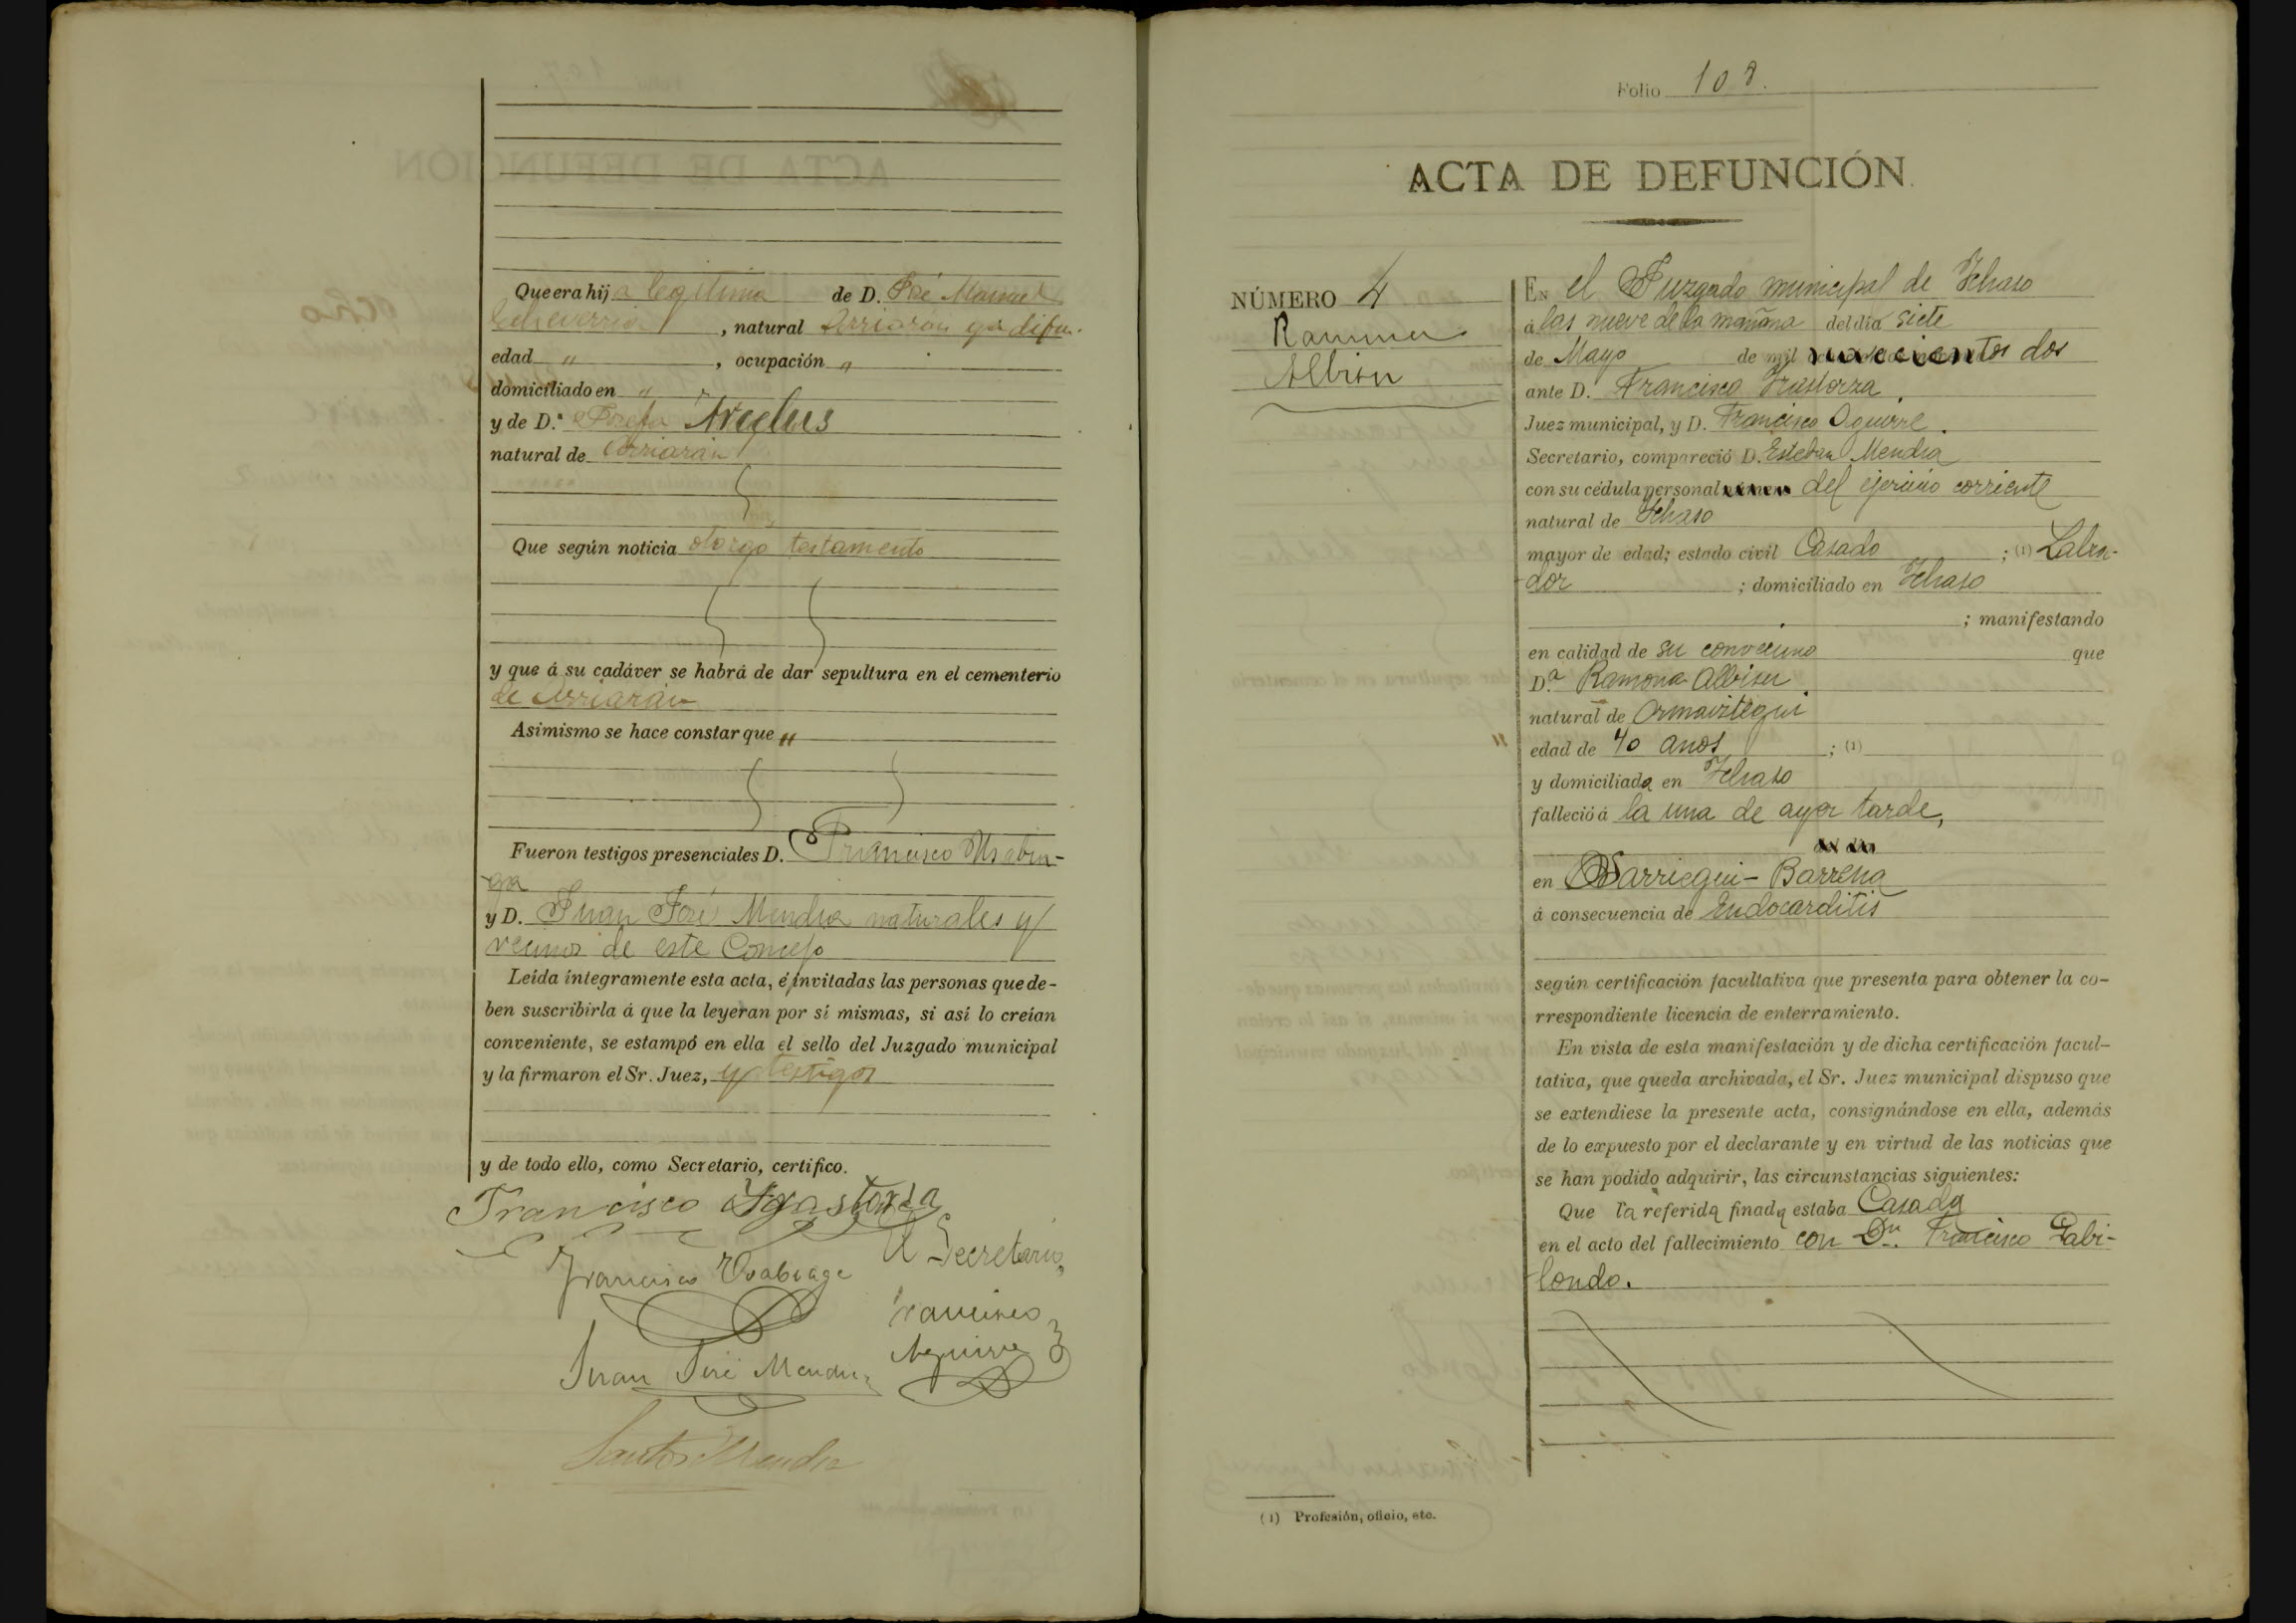 Que era hija legitima de D. José Manuel
Echeverria, natural Arriarán ya difun.
edad " , ocupación "
domiciliado en "
y de D.ª Josefa Areclus
natural de Arriarán
Que según noticia otorgó testamento
y que á su cadáver se habrá de dar sepultura en el cementerio
de Arriarán
Asimismo se hace constar que "
Fueron testigos presenciales D. Francisco Usabia-
ga
y D. Juan José Mendia naturales y
vecinos de este Concejo
Leída íntegramente esta acta, é invitadas las personas que de-
ben suscribirla á que la leyeran por sí mismas, si así lo creían
conveniente, se estampó en ella el sello del Juzgado municipal
y la firmaron el Sr. Juez, y testigos
y de todo ello, como Secretario, certifico.
Francisco
El Secretario,
Francisco Usabiaga
Francisco
Aguirre
Juan José Mendia
Mendia
Folio 108.
ACTA DE DEFUNCIÓN.
NÚMERO 4
Ramona
Albisu
EN el Juzgado municipal de Ichaso
á las nueve de la mañana del día siete
de Mayo de mil novecientos dos
ante D. Francisco Irastorza.
Juez municipal, y D. Francisco Aguirre.
Secretario, compareció D. Esteban Mendia
con su cédula personal del ejercicio corriente
natural de Ichaso
mayor de edad; estado civil Casado ; (1) Labra-
dor ; domiciliado en Ichaso
; manifestando
en calidad de su convecino que
D.ª Ramona Albisu.
natural de Ormaiztegui
" edad de 40 anos ; (1)
y domiciliada en Ichaso
falleció á la una de ayer tarde,
en Barriegui-Barrena
á consecuencia de Endocarditis
según certificación facultativa que presenta para obtener la co-
rrespondiente licencia de enterramiento.
En vista de esta manifestación y de dicha certificación facul-
tativa, que queda archivada, el Sr. Juez municipal dispuso que
se extendiese la presente acta, consignándose en ella, además
de lo expuesto por el declarante y en virtud de las noticias que
se han podido adquirir, las circunstancias siguientes:
Que la referida finada estaba Casada
en el acto del fallecimiento con Dn. Francisco Gabi-
londo.
(1) Profesión, oficio, etc.